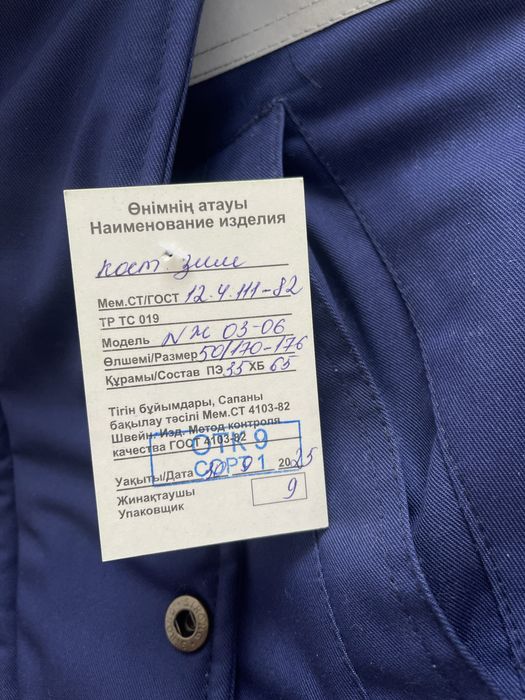 Өнімнің атауы
Наименование изделия
кост. зим
Мем.СТ/ГОСТ 12.4.111-82
ТР ТС 019
Модель NМ 03-06
Өлшемі/Размер 50/170-176
Құрамы/Состав ПЭ 35 ХБ 65
Тігін бұйымдары, Сапаны
бақылау тәсілі Мем.СТ 4103-82
Швейн. Изд. Метод контроля
качества ГОСТ 4103-82
ОТК 9
СОРТ 1
Уақыты/Дата 2025
Жинақтаушы 9
Упаковщик